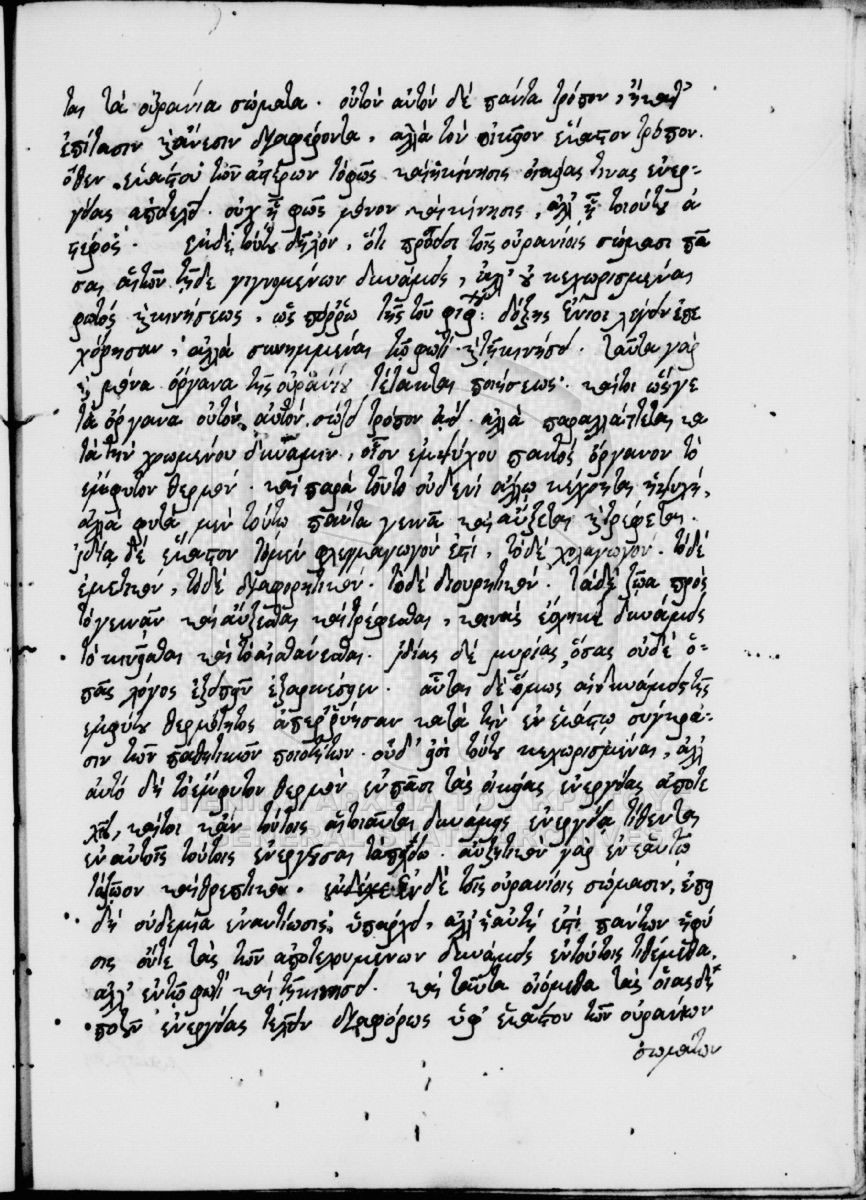 ται τὰ οὐράνια σώματα. οὐ τὸν αὐτὸν δὲ πάντα τρόπον, ἢ κατ'
ἐπίτασιν ἢ ἄνεσιν διαφέροντα, ἀλλὰ τὸν οἰκεῖον ἕκαστον τρόπον.
ὅθεν ἑκάστου τῶν ἀστέρων τὸ φῶς καὶ ἡ κίνησις οἰκείας τινὰς ἐνερ-
γείας ἀποτελεῖ. οὐχ ᾗ φῶς μόνον καὶ κίνησις, ἀλλ' ᾗ τοιούτου ἀ
στέρος. ἐκ δὲ τούτου δῆλον, ὅτι πρόσεισι τοῖς οὐρανίοις σώμασι πᾶ
σαι αἱ τῶν τῇδε γιγνομένων δυνάμεις, ἀλλ' οὐ κεχωρισμέναι
φωτὸς ἢ κινήσεως, ὡς πόρρω τῆς τοῦ δόξης ἔνιοι λέγειν ἐπε
χείρησαν, ἀλλὰ συνημμέναι τῷ φωτὶ καὶ τῇ κινήσει. ταῦτα γὰρ
καὶ μόνα ὄργανα τῆς οὐρανίου τέτακται ποιήσεως. καίτοι ὥς γε
τὰ ὄργανα οὐ τὸν αὐτὸν σώζει τρόπον ἀεί. ἀλλὰ παραλλάττεται κα
τὰ τὴν χρωμένου δύναμιν, οἷον ἐμψύχου παντὸς ὄργανον τὸ
ἔμφυτον θερμόν. καὶ παρὰ τοῦτο οὐδενὶ ἄλλῳ κέχρηται ἡ ψυχή,
ἀλλὰ φυτὰ μὲν τούτῳ πάντα γεννᾷ καὶ αὔξεται καὶ τρέφεται.
ἰδίᾳ δὲ ἕκαστον τὸ μὲν φλεγμαγωγόν ἐστι, τὸ δὲ χολαγωγόν. τὸ δὲ
ἐμετικόν, τὸ δὲ διαφορητικόν. τὸ δὲ διουρητικόν. τὰ δὲ ζῶα πρὸς
τὸ γεννᾶν καὶ αὔξεσθαι καὶ τρέφεσθαι, κοινὰς ἔσχηκε δυνάμεις
τὸ κινεῖσθαι καὶ τὸ αἰσθάνεσθαι. ἰδίας δὲ μυρίας, ὅσας οὐδὲ ὁ-
πᾶς λόγος ἐξειπεῖν ἐξαρκέσειεν. αὗται δὲ ὅμως αἱ δυνάμεις τῆς
ἐμφύτου θερμότητος ἀπερρύησαν κατὰ τὴν ἐν ἑκάστῳ σύγκρα-
σιν τῶν παθητικῶν ποιοτήτων. οὐδ' εἰσὶ τούτου κεχωρισμέναι, ἀλλ'
αὐτὸ δὴ τὸ ἔμφυτον θερμὸν ἐν πᾶσι τὰς οἰκείας ἐνεργείας ἀποτε
λεῖ, καίτοι κἀν τούτοις αἱ τοιαῦται δυνάμεις ἐνεργείᾳ τίθενται
ἐν αὐτοῖς τούτοις ἐνεργῆσαι αὐξητικὸν γὰρ ἐν ἑαυτῷ
τὸ ζῶον καὶ θρεπτικόν. ἐν δὲ τοῖς οὐρανίοις σώμασιν, ἐπεὶ
δὴ οὐδεμία ἐναντίωσις ὑπάρχει, ἀλλ' ἡ αὐτὴ ἐπὶ πάντων ἡ φύ
σις οὔτε τὰς τῶν ἀποτελουμένων δυνάμεις ἐν τούτοις τιθέμεθα,
ἀλλ' ἐν τῷ φωτὶ καὶ τῇ κινήσει. καὶ ταῦτα οἰόμεθα τὰς οἵας δή
ποτ' οὖν ἐνεργείας τελεῖν διαφόρως ὑφ' ἑκάστου τῶν οὐρανίων
σωμάτων